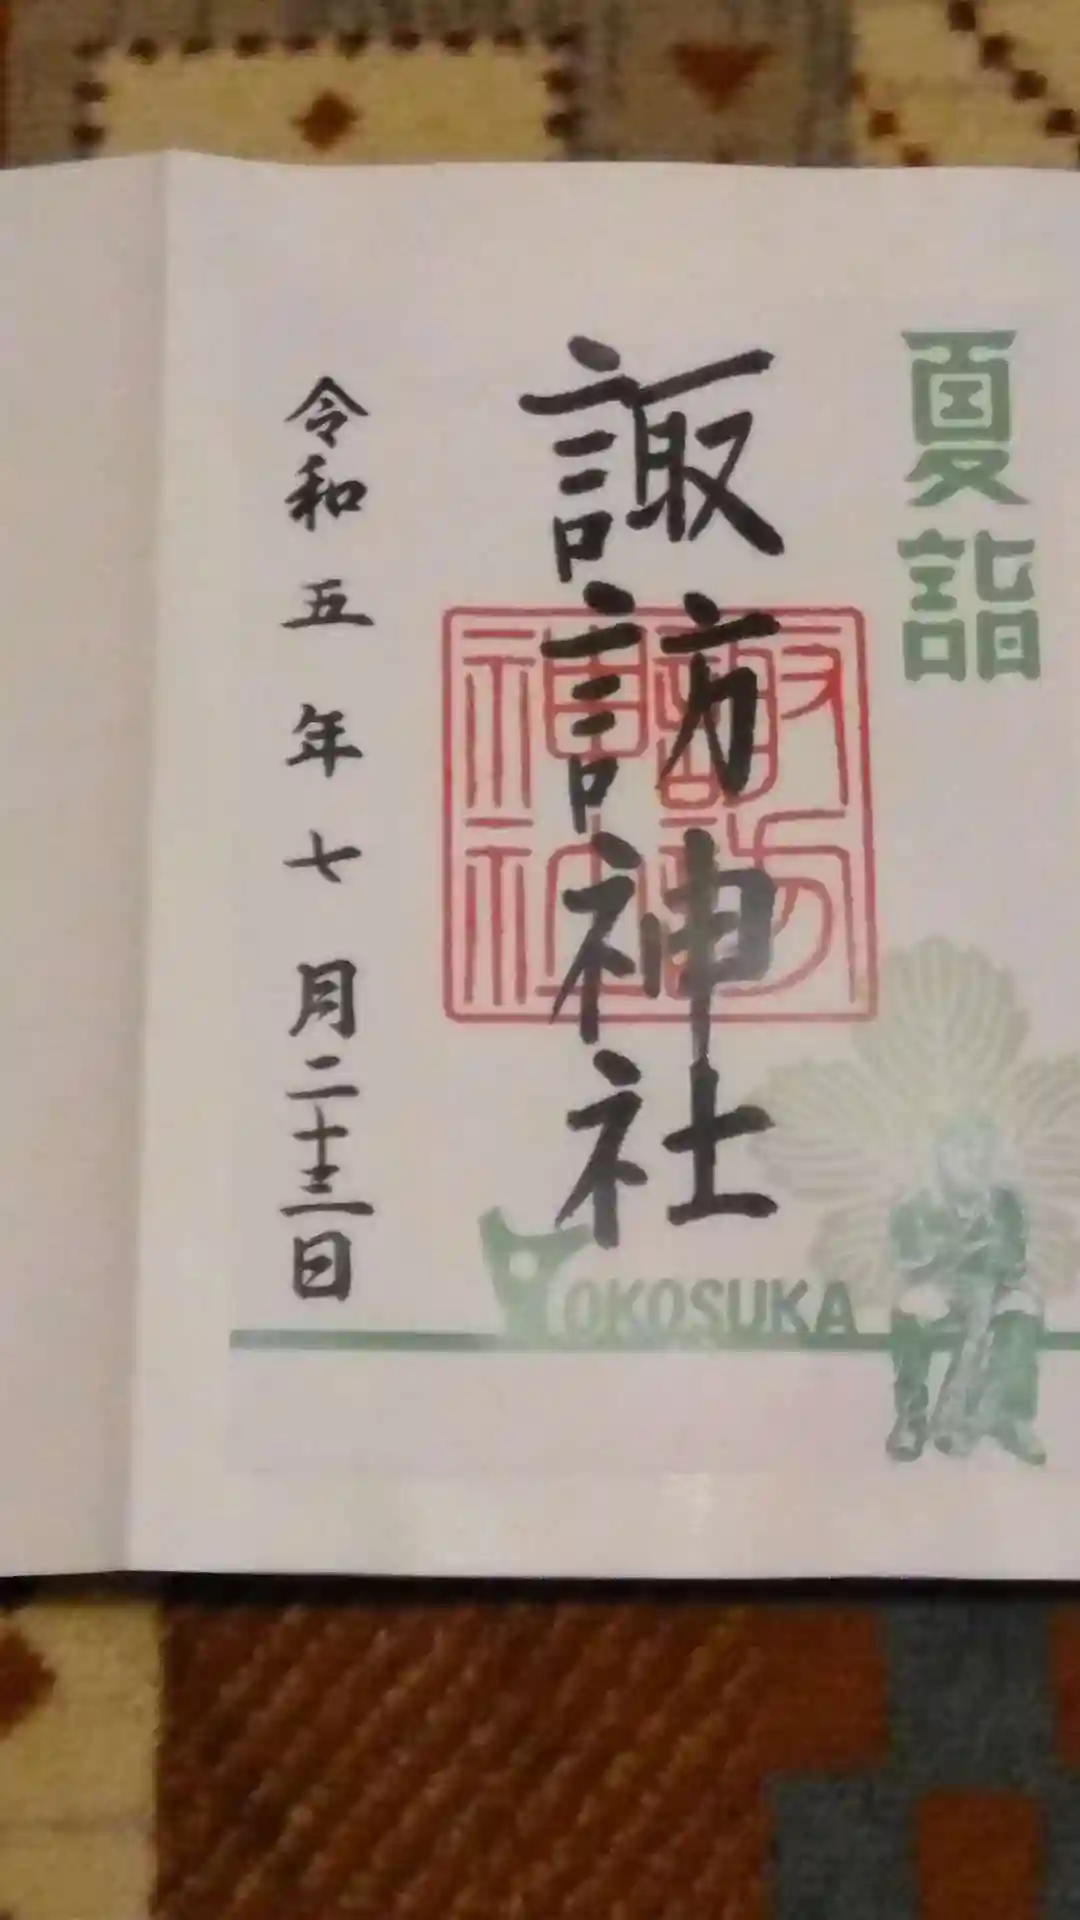 夏詣
諏訪神社
諏訪神社
令和五年七月二十三日
YOKOSUKA